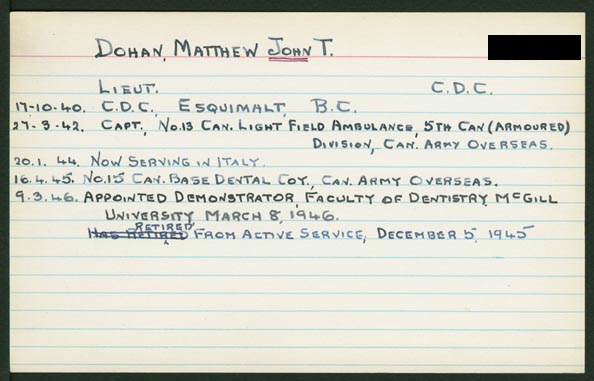 DOHAN, MATTHEW JOHN T.
LIEUT. C.D.C.
17-10-40. C.D.C. ESQUIMALT, B.C.
27-3-42. CAPT., NO.13 CAN. LIGHT FIELD AMBULANCE, 5TH CAN (ARMOURED)
DIVISION, CAN. ARMY OVERSEAS.
20.1.44. NOW SERVING IN ITALY.
16.4.45. NO.15 CAN. BASE DENTAL COY., CAN. ARMY OVERSEAS.
9.3.46. APPOINTED DEMONSTRATOR, FACULTY OF DENTISTRY, MCGILL
UNIVERSITY, MARCH 8, 1946.
RETIRED
HAS RETIRED FROM ACTIVE SERVICE, DECEMBER 5, 1945